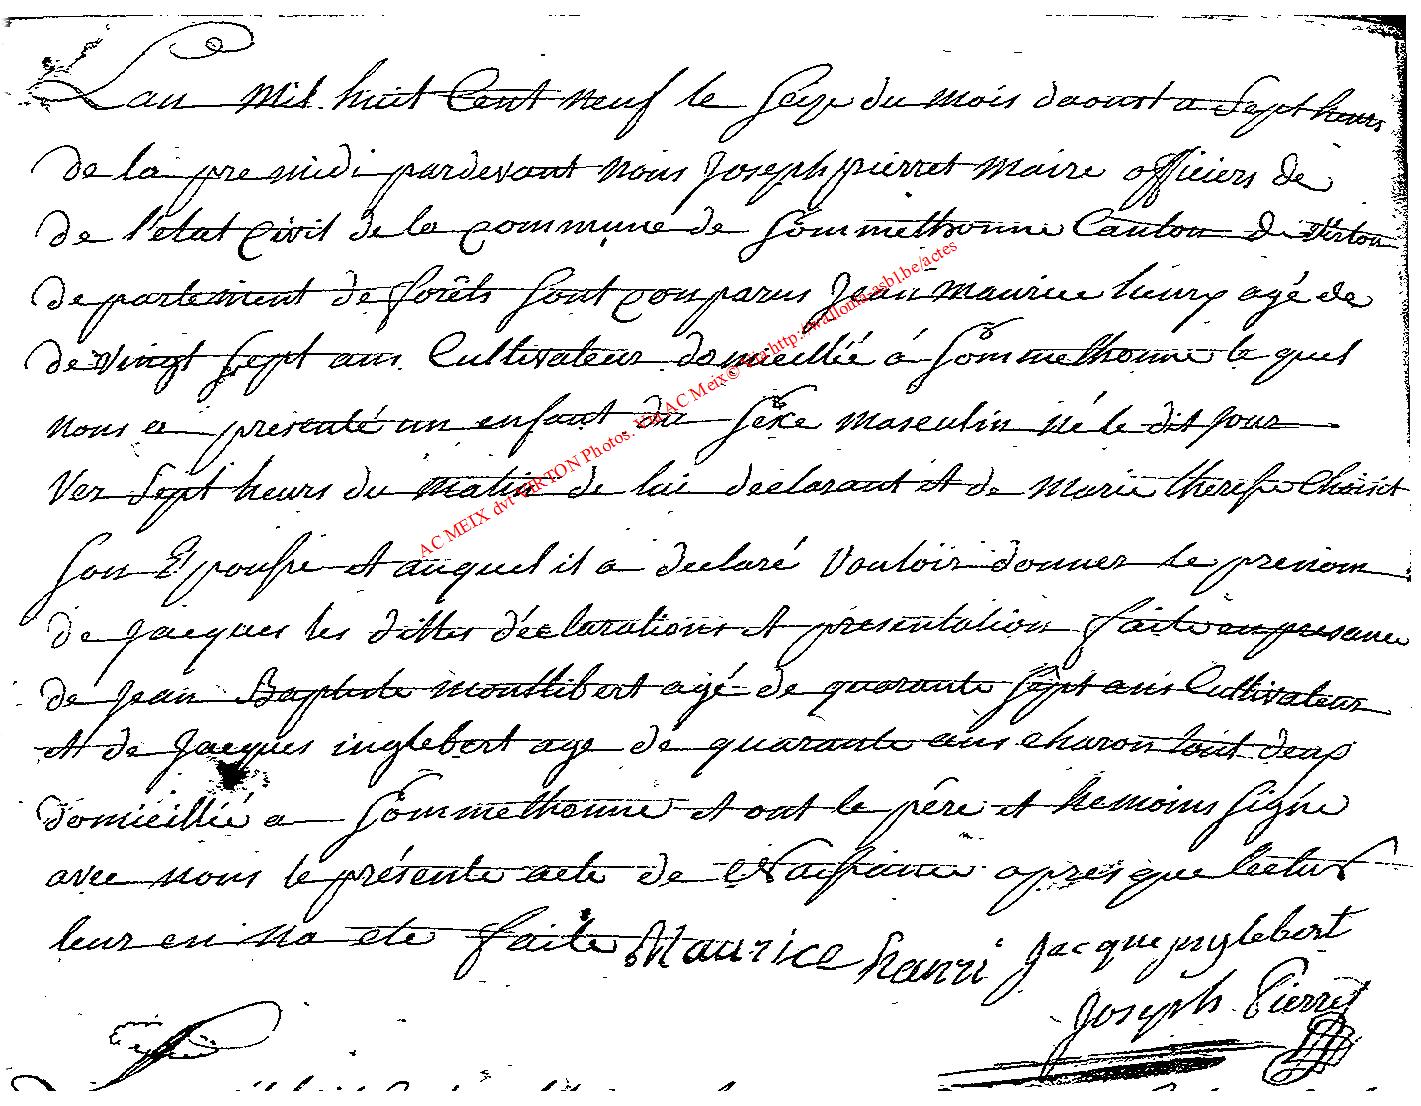 Lan mil huit Cent neuf le Seize du mois daoust a Sept heurs
de la pre midi pardevant nous Joseph pierret maire officiers de
de l'état Civil de la commune de Sommethonne Canton de Virton
departement de forêts Sont comparus Jean maurice henry agé de
de vingt Sept ans Cultivateur domicillié á Sommethonne le quel
nous a presenté un enfant du Séxe masculin né le dit jour
Ver Sept heurs du matin de lui declarant et de marie theresse Choiset
Son Epousse et auquel il a declaré Vouloir donner le prenom
de jacques les dittes déclarations et presentation faite en presance
de jean Baptiste montlibert agé de quarante Sept ans Cultivateur
et de jacques inglebert age de quarante ans charon tout deux
domicillié a Sommethonne et ont le pére et temoins Signé
avec nous le présente acte de Naissance apres que lectur
leur en na ete faite Maurice hanri Jacque ynglebert
Joseph Pierret
AC MEIX dvt VIRTON Photos. Via AC Meix© via http://wallonia.asbl.be/actes